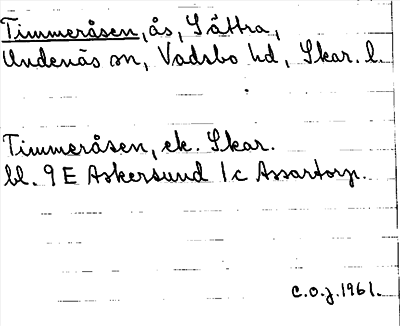 Timmeråsen, ås, Sättra,
Undenäs sn, Vadsbo hd, Skar. l.
Timmeråsen, ek. Skar.
bl. 9 E Askersund 1c Assartorp.
C.O.J. 1961.